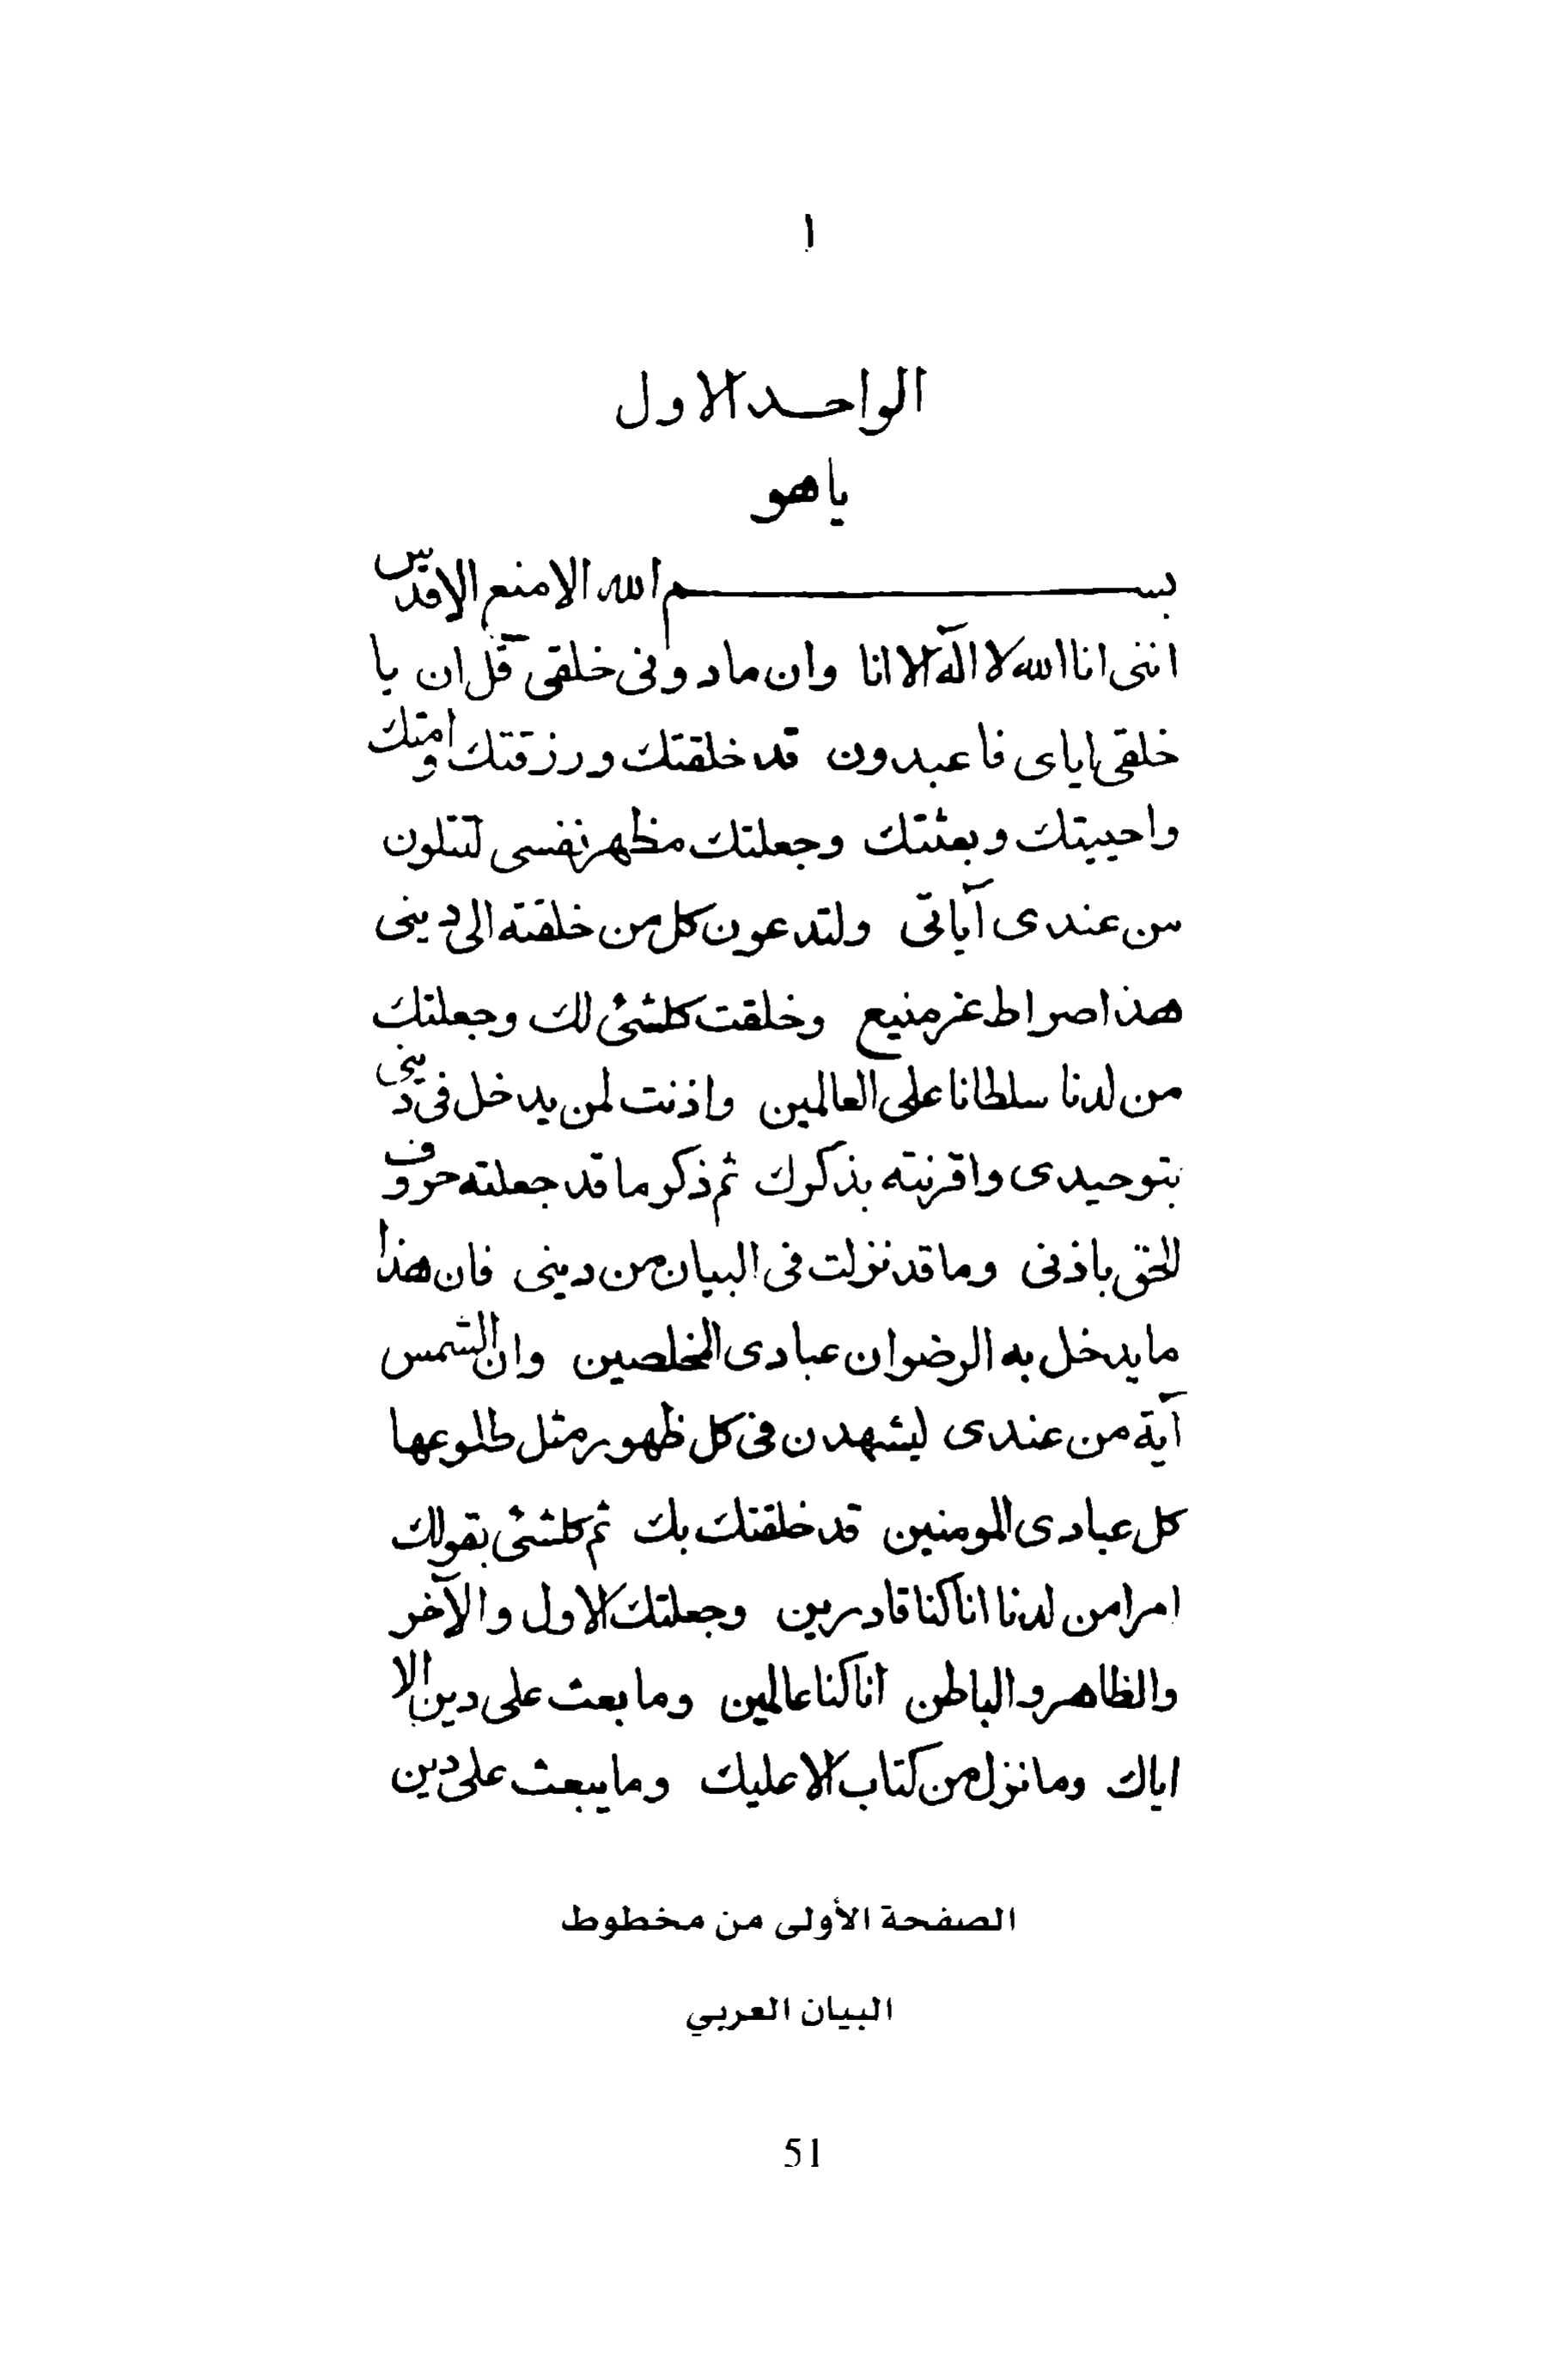 ١
الواحد الاول
يا هو
بسم الله الامنع الاقدس
اننى انا الله لا اله الا انا وان ما دونى خلقى قل ان يا
خلقى اياى فاعبدون قد خلقتك ورزقتك وامتك
واحييتك وبعثتك وجعلتك مظهر نفسى لتتلون
من عندى آياتى ولتدعون كل من خلقته الى دينى
هذا صراط عز منيع وخلقت كلشئ لك وجعلتك
من لدنا سلطانا على العالمين واذنت لمن يدخل فى دينى
بتوحيدى واقرنته بذكرك ثم ذكر ما قد جعلته حروف
الحق باذنى وما قد نزلت فى البيان من دينى فان هذا
ما يدخل به الرضوان عبادى المخلصين وان الشمس
آية من عندى ليشهدن فى كل ظهور مثل طلوعها
كل عبادى المومنين قد خلقتك بك ثم كلشئ بقولك
امرا من لدنا انا كنا قادرين وجعلتك الاول والآخر
والظاهر والباطن انا كنا عالمين وما بعث على دين الا
اياك وما نزل من كتاب الا عليك وما يبعث على دين
الصفحة الأولى من مخطوط
البيان العربي
51